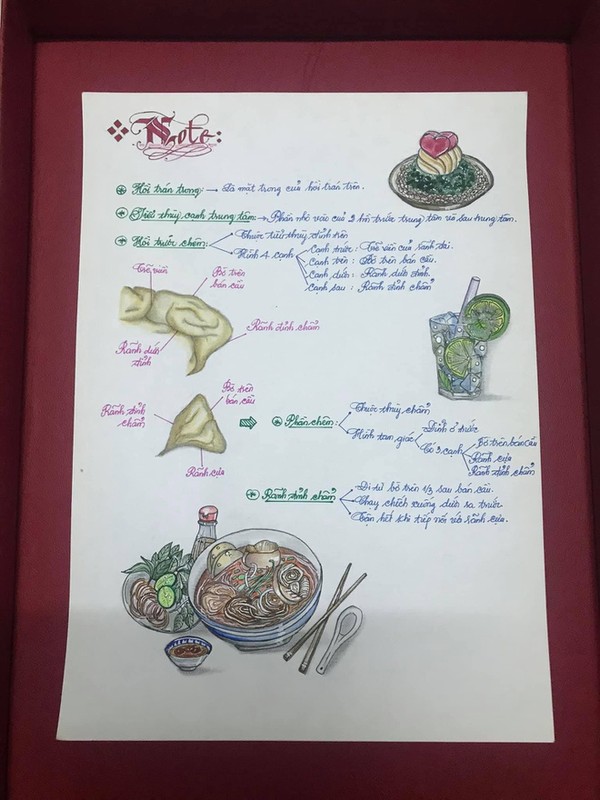 Note:
Hồi trán trong: → Là mặt trong cuả hồi trán trên.
Tiểu thùy cạnh trung tâm: → Phần nhỏ vào cuả 2 hồi trước trung tâm và sau trung tâm.
Hồi trước chêm:
Thuộc tiểu thùy đỉnh trên
Hình 4 cạnh
Cạnh trước: Trẽ viền cuả rãnh đai.
Cạnh trên: Bờ trên bán cầu.
Cạnh dưới: Rãnh dưới đỉnh.
Cạnh sau: Rãnh đỉnh chẩm
Trẽ viền
Bờ trên bán cầu
Rãnh đỉnh chẩm
Rãnh dưới đỉnh
Bờ trên bán cầu
Rãnh đỉnh chẩm
Rãnh cựa
Phần chêm:
Thuộc thùy chẩm
Hình tam giác
Đỉnh ở trước
Có 3 cạnh
Bờ trên bán cầu
Rãnh cựa
Rãnh đỉnh chẩm
Rãnh đỉnh chẩm:
Đi từ bờ trên 1/3 sau bán cầu.
Chạy chếch xuống dưới ra trước.
Tận hết khi tiếp nối với rãnh cựa.